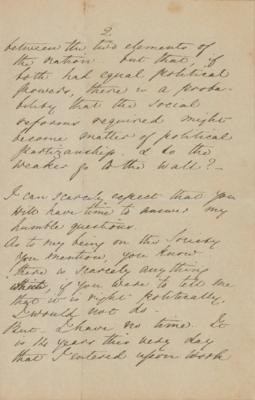 2.
between the two elements of
the nation but that, if
both had equal political
powers, there is a proba-
bility that the social
reforms required might
become matter of political
partizanship. & so the
weaker go to the wall?—
I can scarcely expect that you
will have time to answer my
humble questions.
As to my being on the Society
you mention, you know
there is scarcely anything
which, if you were to tell me
that it is right politically,
I would not do.
But I have no time. It
is 14 years this very day
that I entered upon work